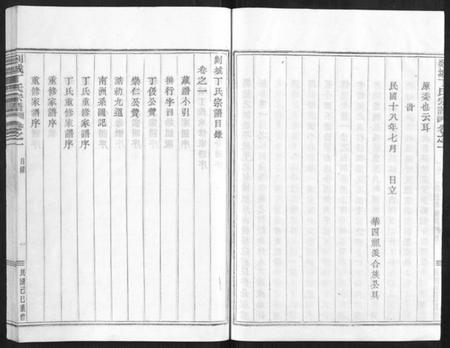 原委也云耳
時
民國十八年七月 日立
剡城丁氏宗譜目錄
卷之一
藏譜小引
排行字目
丁優公贊
崇仁公贊
誥勅九道
南洲系圖記
丁氏重修家譜序
丁氏重修家譜序
重修家譜序
重修家譜序
剡城丁氏宗譜
卷之一
目錄
一
民國己巳重修